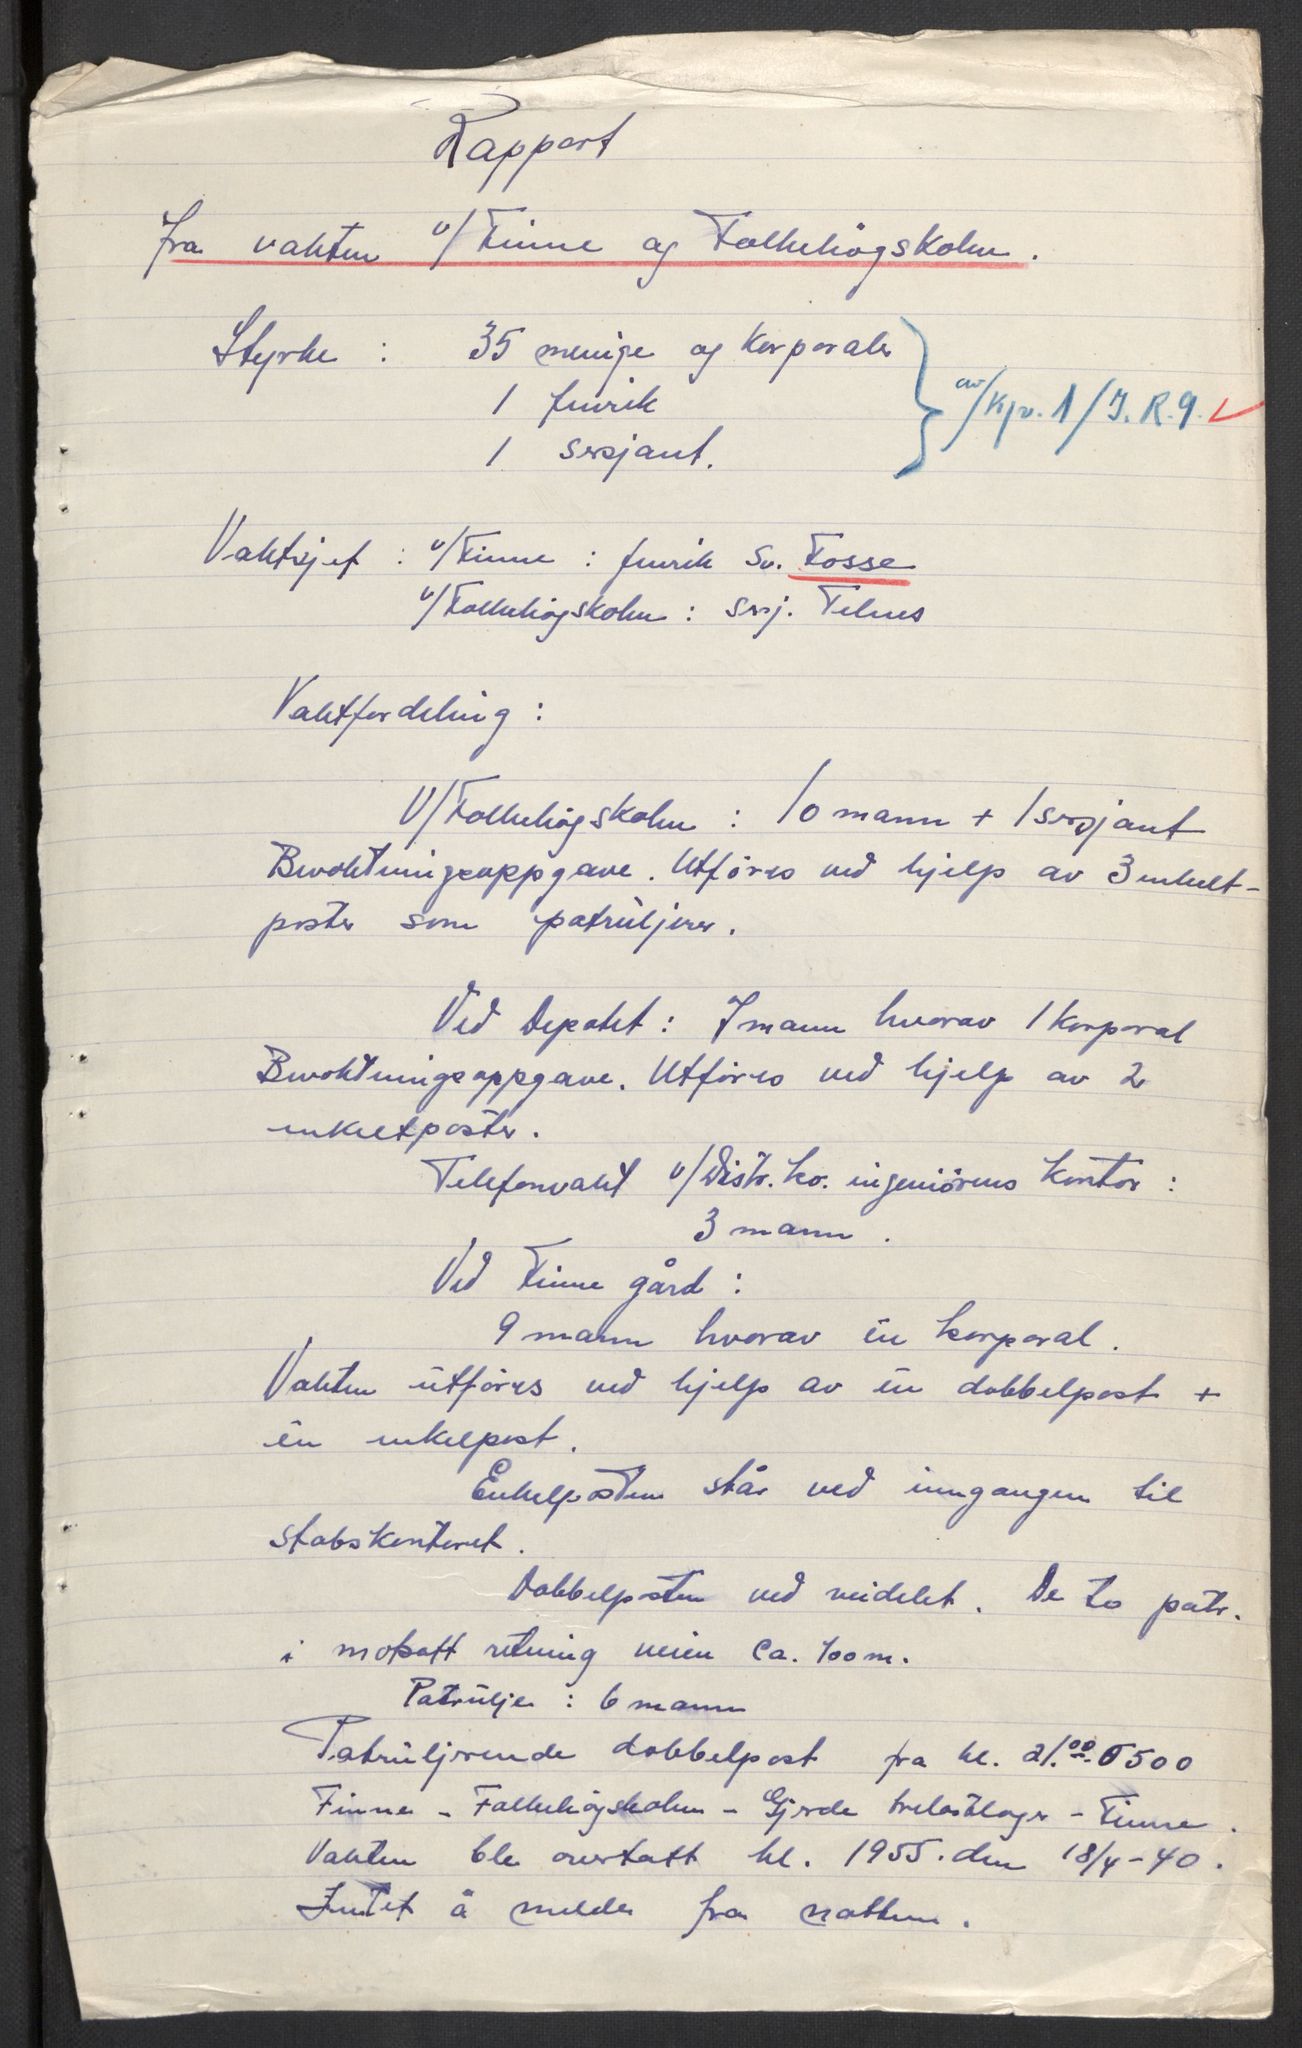 Rapport
fra vakten v/Finne og Folkehögskolen.
Styrke : 35 menige og korporaler
1 fenrik
1 sersjant.
av/Kp. 1/I.R.9.
Vaktsjef : v/Finne : fenrik Sv. Fosse
v/Folkehögskolen : sersj. Telnes
Vaktfordeling :
V/Folkehögskolen : 10 mann + 1 sersjant
Bevoktningsoppgave. Utföres ved hjelp av 3 enkelt-
poster som patruljerer.
Ved Depotet : 7 mann hvorav 1 korporal
Bevoktningsoppgave. Utföres ved hjelp av 2
enkeltposter.
Telefonvakt v/Distr. ko. ingeniörens kontor :
3 mann .
Ved Finne gård :
9 mann hvorav én korporal.
Vakten utföres ved hjelp av én dobbelpost +
én enkelpost.
Enkelposten står ved inngangen til
stabskontoret.
Dobbelposten ved veidelet. De to patr.
i motsatt retning veien ca. 100 m.
Patrulje : 6 mann
Patruljerende dobbelpost fra kl. 21.00-0500
Finne - Folkehögskolen - Gjerde trelastlager - Finne.
Vakten ble overtatt kl. 1955. den 18/4-40.
Intet å melde fra natten.